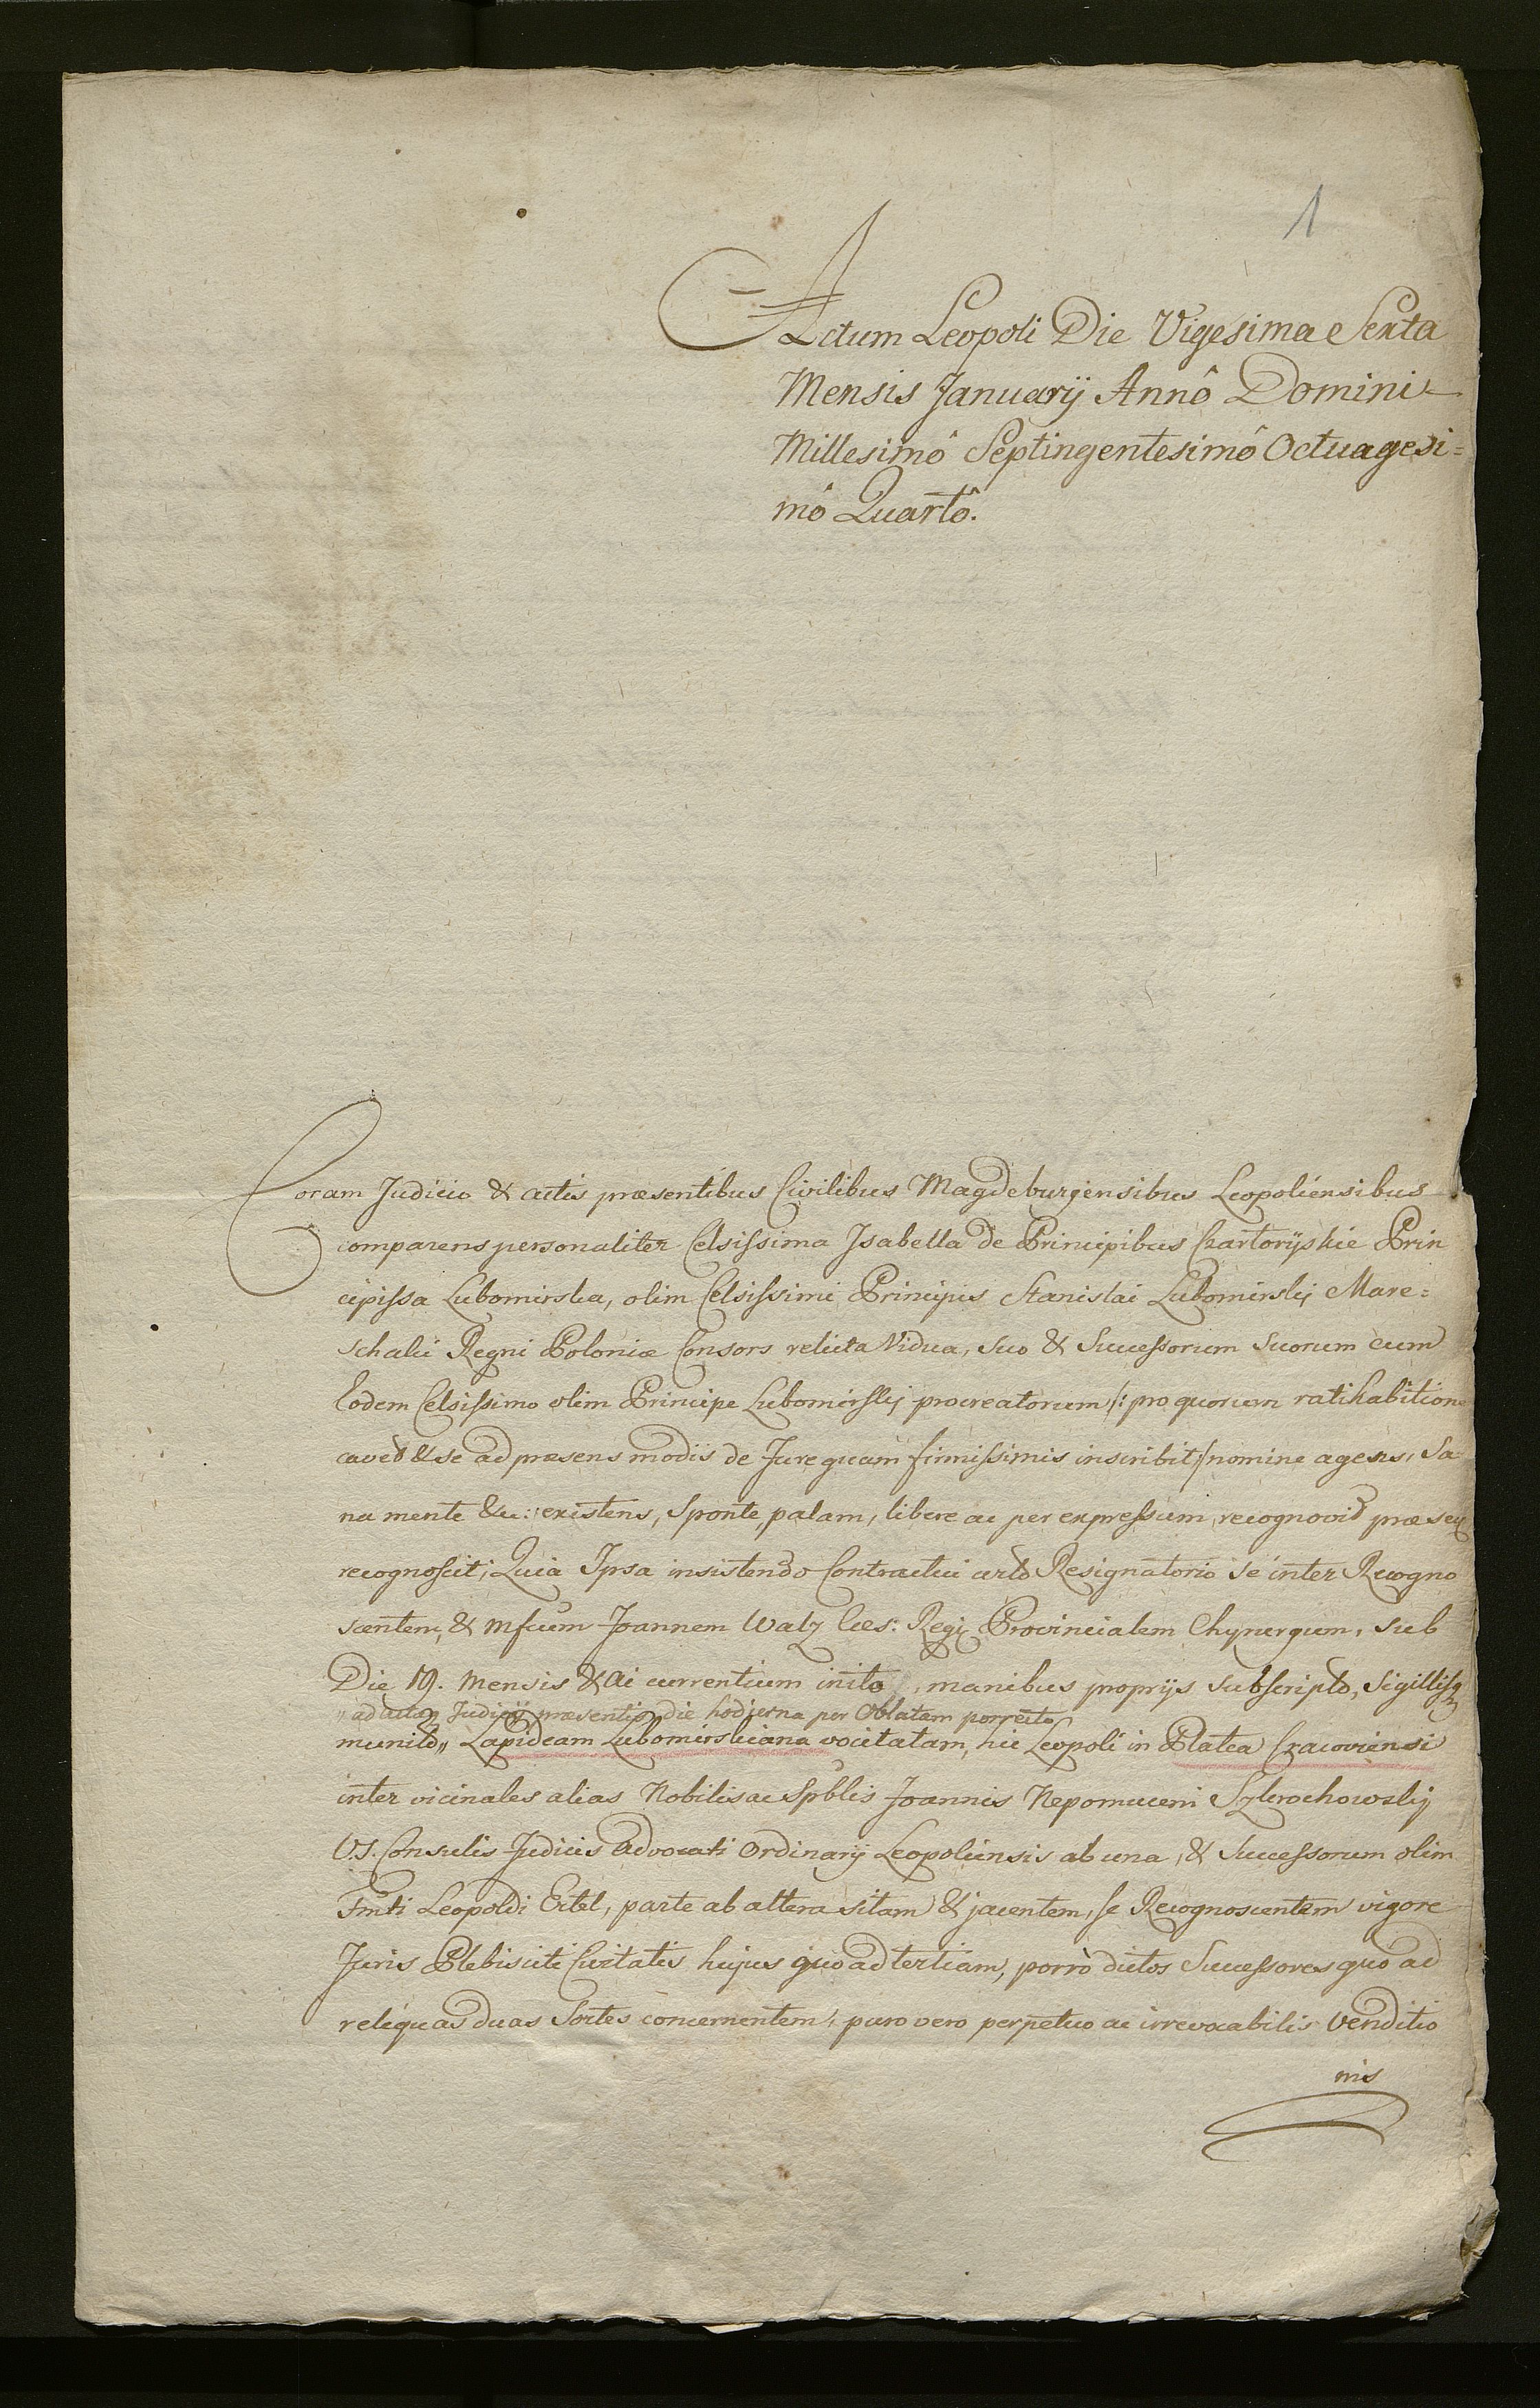 1
Actum Leopoli Die Vigesima Sexta
Mensis Januarij Annô Domini
Millesimô Septingentesimô Octuagesi=
mô Quartô.
Coram Judicio & actis præsentibus Civilibus Magdeburgensibus Leopoliensibus
comparens personaliter Celsissima Isabella de Principibus Czartoryskie Prin
cipissa Lubomirska, olim Celsissimi Principis Stanislai Lubomirskij Mare=
schalci Regni Poloniæ Consors relicta Vidua, suo & Successorum suorum cum
Eodem Celsissimo olim Principe Lubomirskij procreatorum /: pro quorum ratihabitione
cavet & se ad præsens modis de Jure quam firmissimis inscribit :/ nomine agens, Sa=
na mente &c: existens, Sponte, palam, libere ac per expressum recognovit præseq
recognoscit; Quia Ipsa insistendo Contractui Resignatorio sé inter Recogno
scentem, & Joannem Walz Cæs: Regq Provincialem Chyrurgum, sub
Die 19. Mensis & Ai currentium inito, manibus proprijs subscripto, Sigillisq
"ad acta Judicij præsentis die hodierna per Oblatam porrecto
munito" Lapideam Lubomirsciana vocitatam, hic Leopoli in Platea Cracoviensi
inter vicinales alias Nobilis ac Spblis Joannis Nepomuceni
Consulis Judicis Advocati Ordinarij Leopoliensis ab una, & Successorum olim
Fmti Leopoldi Ertel, parte ab altera sitam & jacentem, se Recognoscentem vigore
Juris Plebisciti Civitatis hujus quo ad tertiam, porrò dictos Successores quo ad
reliquas duas Sortes concernentem, puro vero perpetuo ac irrevocabilis Venditio
nis